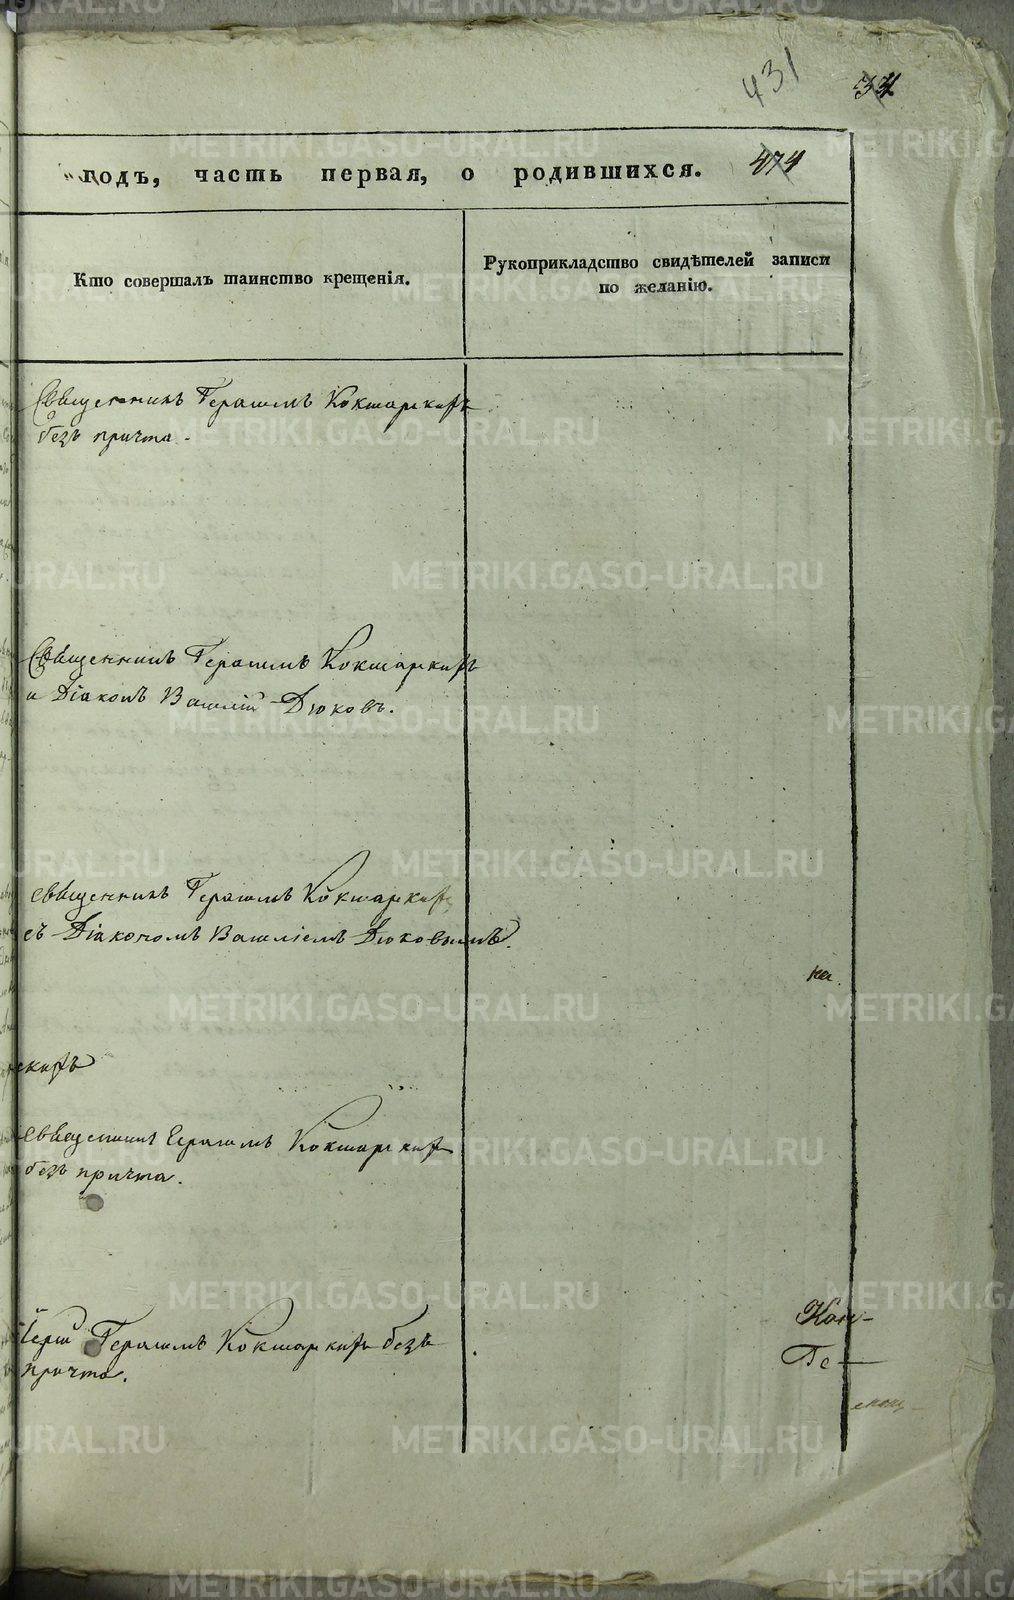 431
34
годъ, часть первая, о родившихся. 474
Кто совершалъ таинство крещенія.
Рукоприкладство свидѣтелей записи
по желанію.
Священникъ Герасимъ Кокшарскій
безъ причта.
Священникъ Герасимъ Кокшарскій
и Діаконъ Василій Дюковъ.
священникъ Герасимъ Кокшарскій
съ Діакономъ Василіемъ Дюковымъ.
на
скій
священникъ Герасимъ Кокшарскій
безъ причта.
Іерей Герасимъ Кокшарскій безъ
причта.
Кон-
Ге-
METRIKI.GASO-URAL.RU